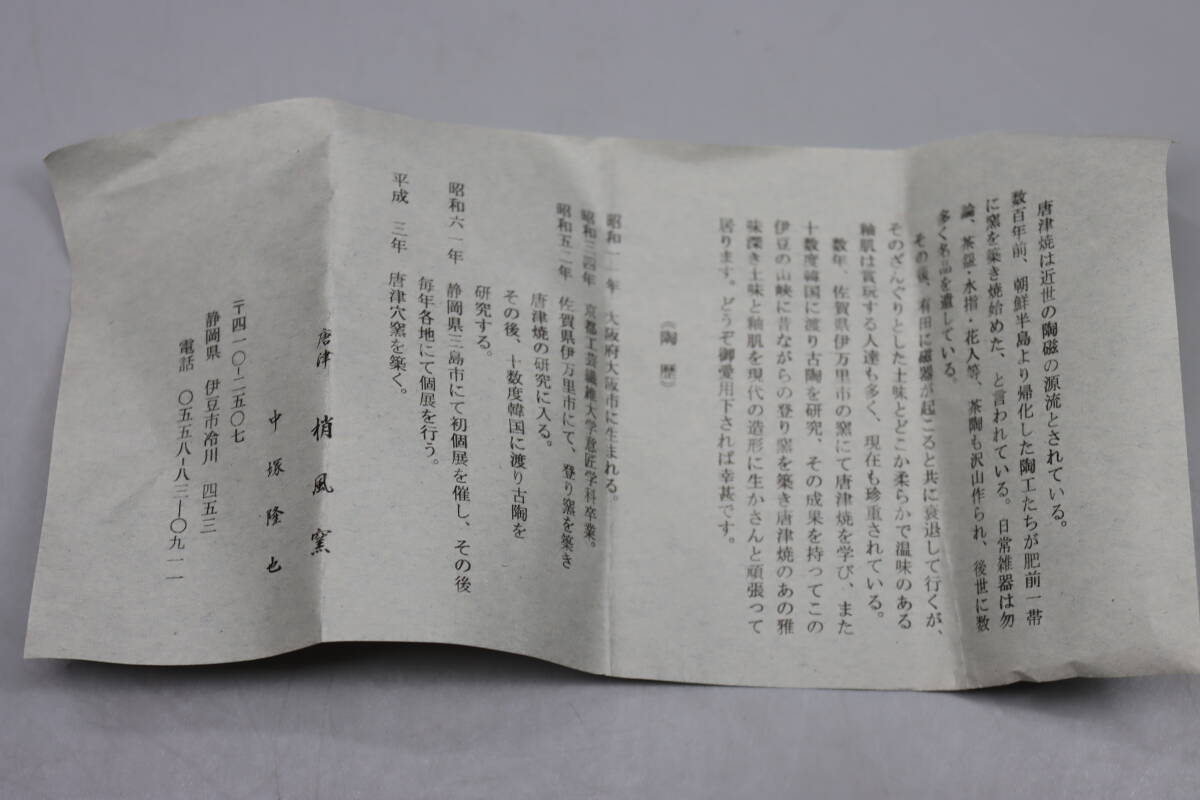 唐津焼は近世の陶磁の源流とされている。
数百年前、朝鮮半島より帰化した陶工たちが肥前一帯
に窯を築き焼始めた、と言われている。日常雑器は勿
論、茶盌・水指・花人等、茶陶も沢山作られ、後世に数
多く名品を遺している。
その後、有田に磁器が起こると共に衰退して行くが、
そのざんぐりとした土味とどこか柔らかで温味のある
釉肌は賞玩する人達も多く、現在も珍重されている。
数年、佐賀県伊万里市の窯にて唐津焼を学び、また
十数度韓国に渡り古陶を研究、その成果を持ってこの
伊豆の山峡に昔ながらの登り窯を築き唐津焼のあの雅
味深き土味と釉肌を現代の造形に生かさんと頑張って
居ります。どうぞ御愛用下されば幸甚です。
《陶歴》
昭和一一年 大阪府大阪市に生まれる。
昭和三四年 京都工芸繊維大学意匠学科卒業。
昭和五二年 佐賀県伊万里市にて、登り窯を築き
唐津焼の研究に入る。
その後、十数度韓国に渡り古陶を
研究する。
昭和六一年 静岡県三島市にて初個展を催し、その後
毎年各地にて個展を行う。
平成 三年 唐津穴窯を築く。
唐津 梢風窯
中塚隆也
〒四一〇-二五〇七
静岡県 伊豆市冷川 四五三
電話 〇五五八-八三-〇九一一